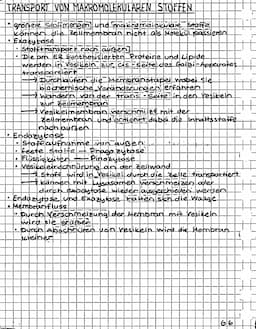 TRANSPORT VON MAKROMOLEKULAREN STOFFEN
• größere Stoffmengen und makromolekulare Stoffe
können die Zellmembran nicht als Molekül passieren
• Exozytose
• Stofftransport nach außen
• Die am ER synthetisierten Proteine und Lipide
werden in Vesikeln zur cis-Seite des Golgi-Apparates
transportiert
→ Durchlaufen die Membranstapel wobei sie
biochemische Veränderungen erfahren
→ Wandern von der Trans-Seite in den Vesikeln
zur Zellmembran
→ Vesikelmembran verschmilzt mit der
Zellmembran und dabei die Inhaltsstoffe
nach außen
• Endozytose
• Stoffaufnahme von außen
• feste Stoffe → Phagozytose
• Flüssigkeiten → Pinozytose
• Vesikelabschnürung an der Zellwand
→ Stoff wird in Vesikel durch die Zelle transportiert
→ können mit Lysosomen verschmelzen oder
durch Exozytose wieder ausgeschieden werden
• Endozytose und Exozytose halten sich die Waage
• Membranfluss
• Durch Verschmelzung der Membran mit Vesikeln
wird sie größer
• Durch Abschnüren von Vesikeln wird die Membran
kleiner
66